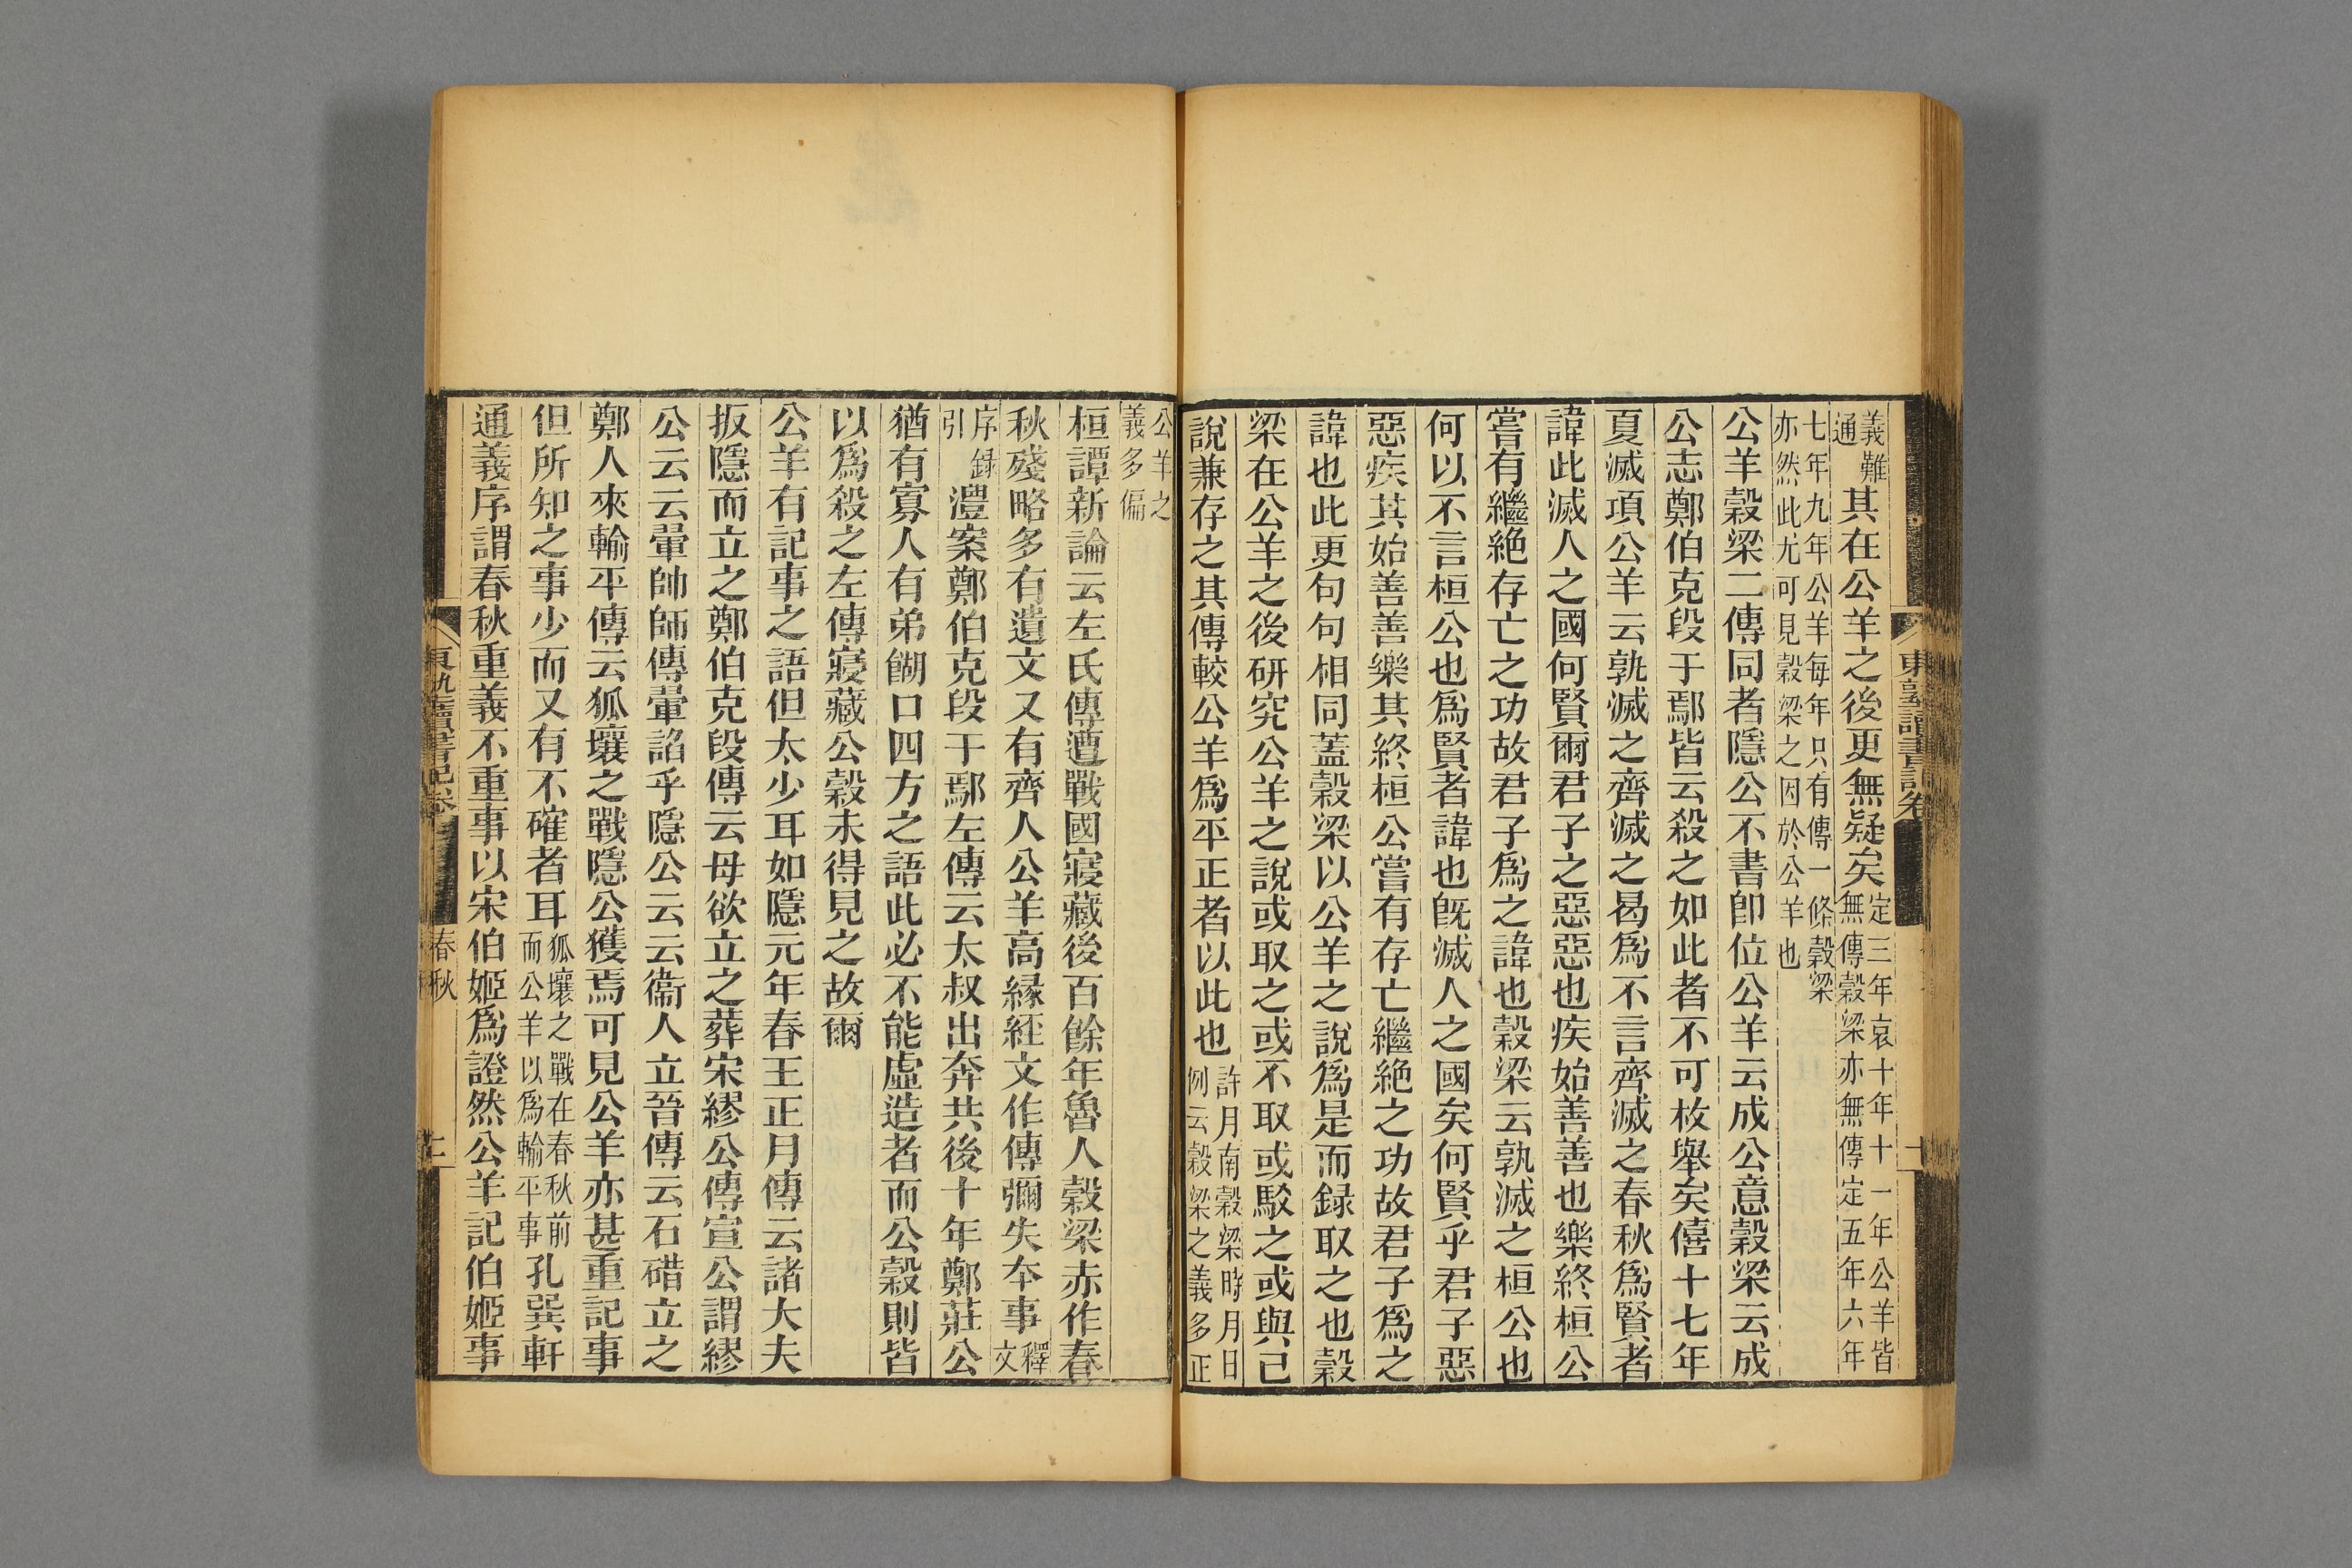 義難通其在公羊之後更無疑矣定三年哀十年十一年公羊皆無傳穀梁亦無傳定五年六年
七年九年公羊每年只有傳一條穀梁亦然此尤可見穀梁之因於公羊也
公羊穀梁二傳同者隱公不書卽位公羊云成公意穀梁云成
公志鄭伯克段于鄢皆云殺之如此者不可枚舉矣僖十七年
夏滅項公羊云孰滅之齊滅之曷爲不言齊滅之春秋爲賢者
諱此滅人之國何賢爾君子之惡惡也疾始善善也樂終桓公
嘗有繼絕存亡之功故君子爲之諱也穀梁云孰滅之桓公也
何以不言桓公也爲賢者諱也旣滅人之國矣何賢乎君子惡
惡疾其始善善樂其終桓公嘗有存亡繼絕之功故君子爲之
諱也此更句句相同蓋穀梁以公羊之說爲是而録取之也穀
梁在公羊之後研究公羊之說或取之或不取或駮之或與己
說兼存之其傳較公羊爲平正者以此也許月南穀梁時月日例云穀梁之義多正
公羊之義多偏
桓譚新論云左氏傳遭戰國寢藏後百餘年魯人穀梁赤作春
秋殘略多有遺文又有齊人公羊高緣經文作傳彌失本事釋文
序録引澧案鄭伯克段于鄢左傳云太叔出奔共後十年鄭莊公
猶有寡人有弟餬口四方之語此必不能虛造者而公穀則皆
以爲殺之左傳寢藏公穀未得見之故爾
公羊有記事之語但太少耳如隱元年春王正月傳云諸大夫
扳隱而立之鄭伯克段傳云母欲立之葬宋繆公傳宣公謂繆
公云云翬帥師傳翬諂乎隱公云云衞人立晉傳云石碏立之
鄭人來輸平傳云狐壤之戰隱公獲焉可見公羊亦甚重記事
但所知之事少而又有不確者耳狐壤之戰在春秋前而公羊以爲輸平事孔巽軒
通義序謂春秋重義不重事以宋伯姬爲證然公羊記伯姬事
東塾讀書記卷
春秋